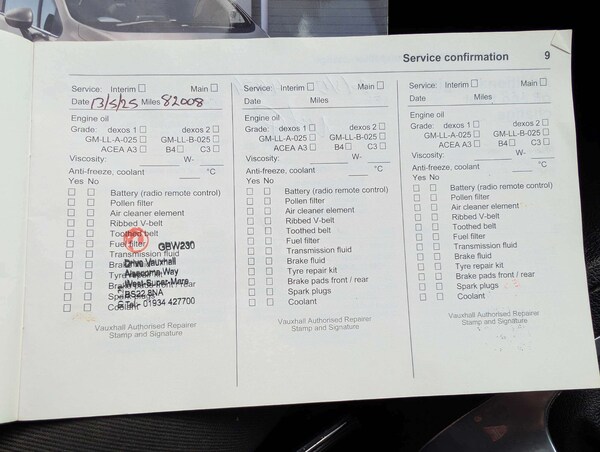 Service confirmation 9
Service: Interim Main
Date 13/5/25 Miles 82008
Engine oil
Grade: dexos 1 dexos 2
GM-LL-A-025 GM-LL-B-025
ACEA A3 B4 C3
Viscosity: W-
Anti-freeze, coolant °C
Yes No
Battery (radio remote control)
Pollen filter
Air cleaner element
Ribbed V-belt
Toothed belt
Fuel filter
GBW230
Transmission fluid
Drive Vauxhall
Brake fluid
Aisecome Way
Tyre repair kit
West-Super-Mare
Brake pads front / rear
BS22 8NA
Spark plugs
Tel:- 01934 427700
Coolant
Vauxhall Authorised Repairer
Stamp and Signature
Service: Interim Main
Date Miles
Engine oil
Grade: dexos 1 dexos 2
GM-LL-A-025 GM-LL-B-025
ACEA A3 B4 C3
Viscosity: W-
Anti-freeze, coolant °C
Yes No
Battery (radio remote control)
Pollen filter
Air cleaner element
Ribbed V-belt
Toothed belt
Fuel filter
Transmission fluid
Brake fluid
Tyre repair kit
Brake pads front / rear
Spark plugs
Coolant
Vauxhall Authorised Repairer
Stamp and Signature
Service: Interim Main
Date Miles
Engine oil
Grade: dexos 1 dexos 2
GM-LL-A-025 GM-LL-B-025
ACEA A3 B4 C3
Viscosity: W-
Anti-freeze, coolant °C
Yes No
Battery (radio remote control)
Pollen filter
Air cleaner element
Ribbed V-belt
Toothed belt
Fuel filter
Transmission fluid
Brake fluid
Tyre repair kit
Brake pads front / rear
Spark plugs
Coolant
Vauxhall Authorised Repairer
Stamp and Signature